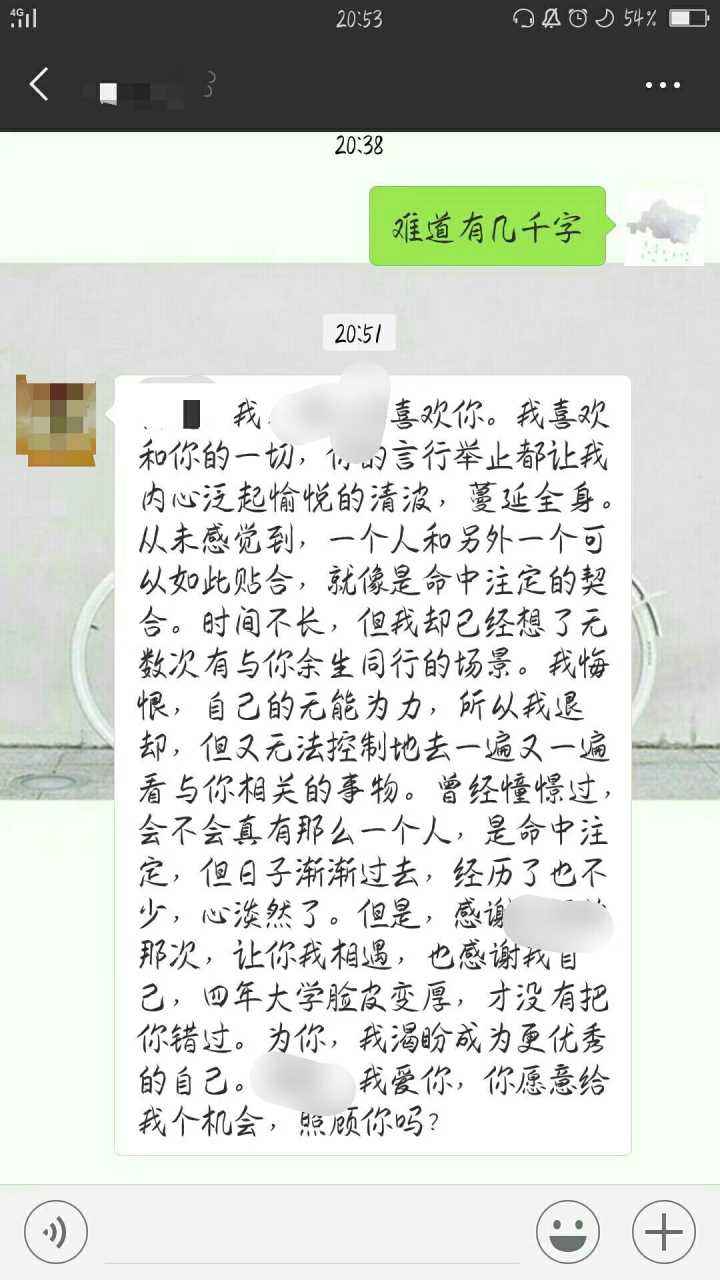 4G
20:53
54%
20:38
难道有几千字
20:51
我 喜欢你。我喜欢
和你的一切，你的言行举止都让我
内心泛起愉悦的清波，蔓延全身。
从未感觉到，一个人和另外一个可
以如此贴合，就像是命中注定的契
合。时间不长，但我却已经想了无
数次有与你余生同行的场景。我悔
恨，自己的无能为力，所以我退
却，但又无法控制地去一遍又一遍
看与你相关的事物。曾经憧憬过，
会不会真有那么一个人，是命中注
定，但日子渐渐过去，经历了也不
少，心淡然了。但是，感谢
那次，让你我相遇，也感谢我自
己，四年大学脸皮变厚，才没有把
你错过。为你，我渴盼成为更优秀
的自己。 我爱你，你愿意给
我个机会，照顾你吗？